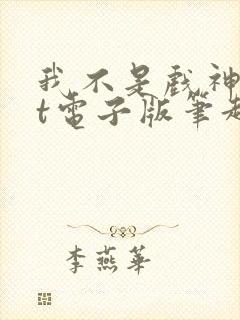 我不是戲神
t電子版筆趣
李燕華